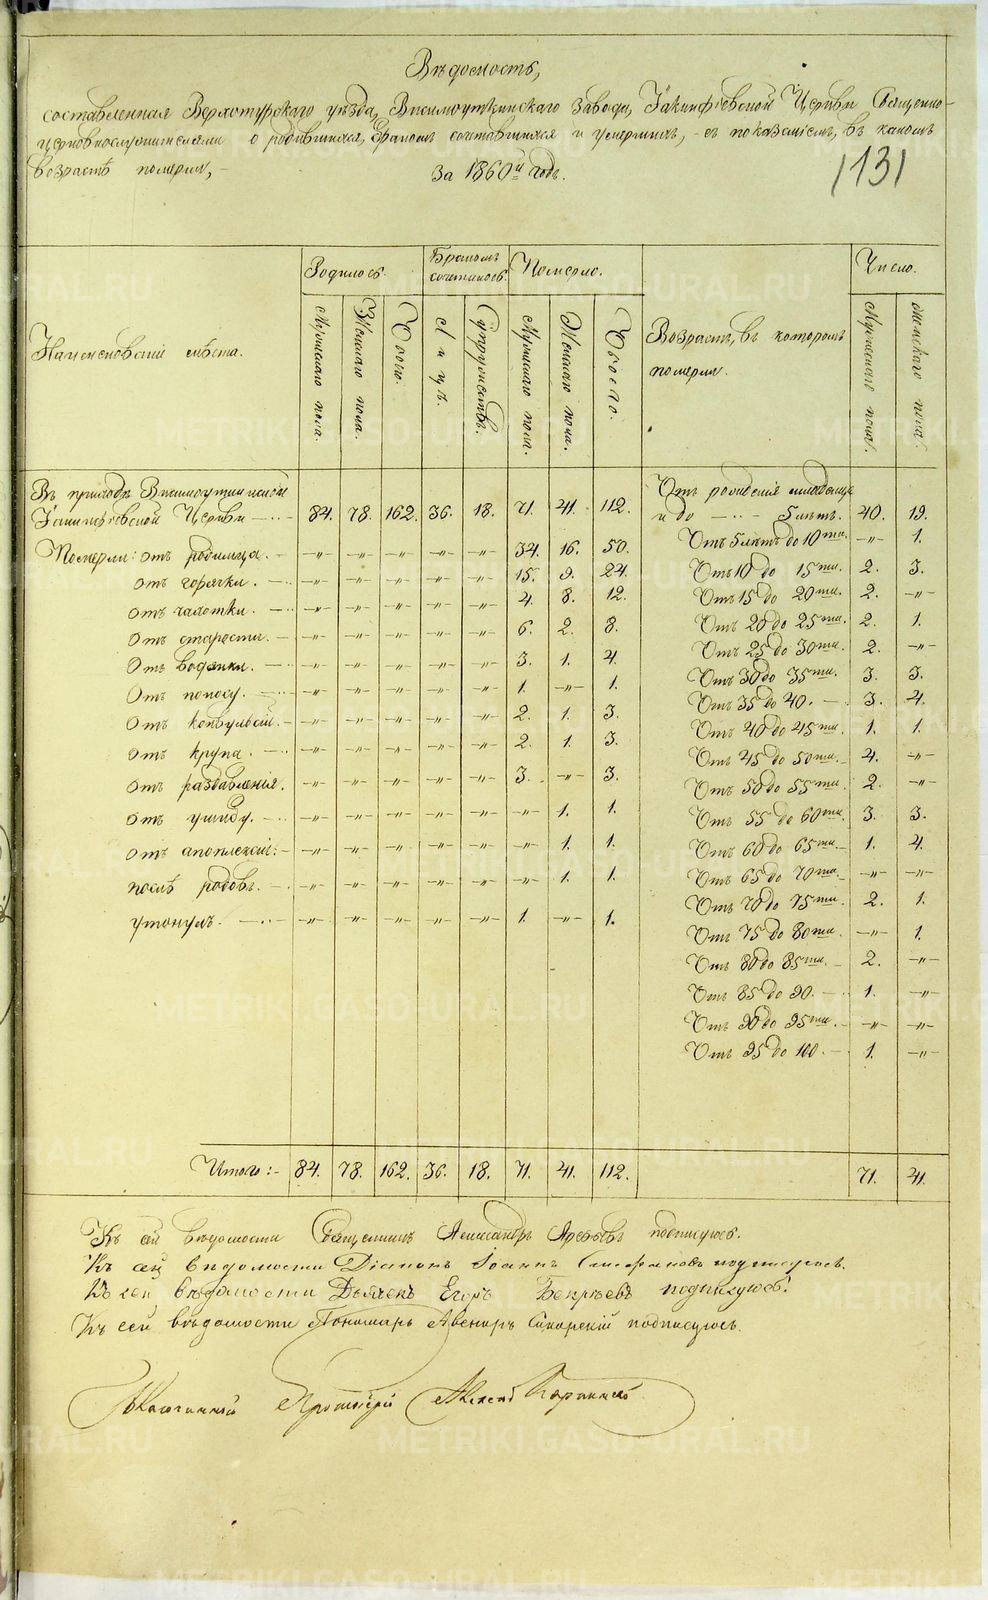 Вѣдомость,
составленная Верхотурскаго уѣзда, Висимоуткинскаго Завода, Іакинфіевской Церкви Священно-
церковнослужителями о родившихся, бракомъ сочетавшихся и умершихъ, - съ показаніемъ, въ какомъ
возрастѣ померли, -
за 1860й годъ.
1131
Наименованіе мѣста.
Родилось.
Мужескаго пола.
Женскаго пола.
Обоего.
Бракомъ сочеталось.
Лицъ.
Супружествъ.
Померло.
Мужескаго пола.
Женскаго пола.
Обоего.
Возрастъ, въ которомъ
померли.
Число.
Мужескаго пола.
Женскаго пола.
Въ приходѣ Висимоуткинской
Іакинфіевской Церкви - 84. 78. 162. 36. 18. 71. 41. 112.
Померли: отъ родимца. - -"- -"- -"- -"- -"- 34. 16. 50.
отъ горячки. - -"- -"- -"- -"- -"- 15. 9. 24.
отъ чахотки. - -"- -"- -"- -"- -"- 4. 8. 12.
отъ старости. - -"- -"- -"- -"- -"- 6. 2. 8.
отъ водянки. - -"- -"- -"- -"- -"- 3. 1. 4.
отъ поносу. - -"- -"- -"- -"- -"- 1. -"- 1.
отъ конвульсій. - -"- -"- -"- -"- -"- 2. 1. 3.
отъ крупа. - -"- -"- -"- -"- -"- 2. 1. 3.
отъ раздавленія. -"- -"- -"- -"- -"- 3. -"- 3.
отъ ушибу. - -"- -"- -"- -"- -"- -"- 1. 1.
отъ апоплексіи. - -"- -"- -"- -"- -"- -"- 1. 1.
послѣ родовъ. - -"- -"- -"- -"- -"- -"- 1. 1.
утонулъ. - -"- -"- -"- -"- -"- 1. -"- 1.
Отъ рожденія младенца
и до - 5 лѣтъ. 40. 19.
Отъ 5 лѣтъ до 10ти. -"- 1.
Отъ 10 до 15ти. 2. 3.
Отъ 15 до 20ти. 2. -"-
Отъ 20 до 25ти. 2. 1.
Отъ 25 до 30ти. 2. -"-
Отъ 30 до 35ти. 3. 3.
Отъ 35 до 40. - 3. 4.
Отъ 40 до 45ти. 1. 1.
Отъ 45 до 50ти. 4. -"-
Отъ 50 до 55ти. 2. -"-
Отъ 55 до 60ти. 3. 3.
Отъ 60 до 65ти. 1. 4.
Отъ 65 до 70ти. -"- -"-
Отъ 70 до 75ти. 2. 1.
Отъ 75 до 80ти. -"- 1.
Отъ 80 до 85ти. 2. -"-
Отъ 85 до 90. - 1. -"-
Отъ 90 до 95ти. -"- -"-
Отъ 95 до 100. - 1. -"-
Итого: - 84. 78. 162. 36. 18. 71. 41. 112. 71. 41.
Къ сей вѣдомости Священникъ Александръ подписуюсь.
Къ сей вѣдомости Діаконъ Іоаннъ подписуюсь.
Къ сей вѣдомости Дьячекъ Егоръ подписуюсь.
Къ сей вѣдомости Пономарь Авениръ Сикорскій подписуюсь.
Протоіерей
METRIKI.GASO-URAL.RU